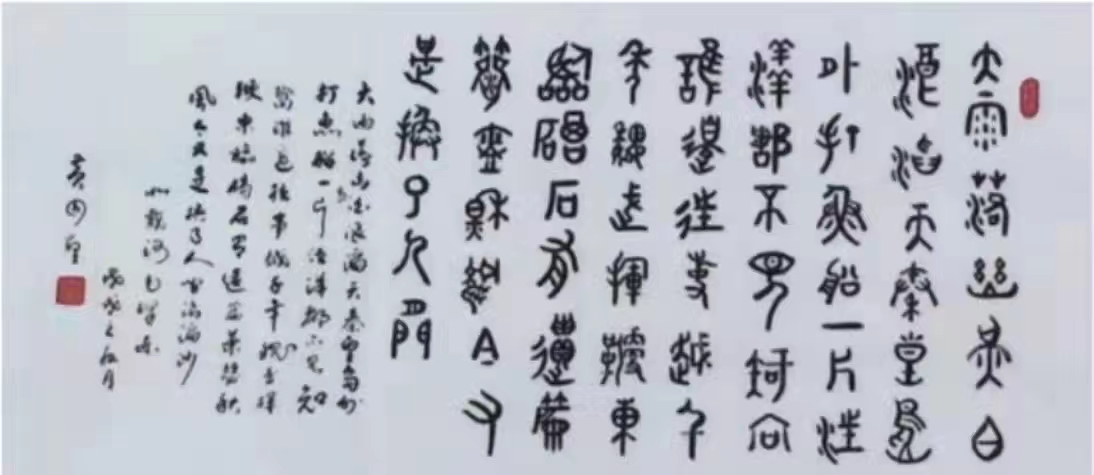 大雨落幽燕白
浪滔天秦皇島
外打魚船一片汪
洋都不見知向
誰邊往事越千
年魏武揮鞭東
臨碣石有遺篇
蕭瑟秋風今又
是換了人間
大雨落幽燕白浪滔天秦皇島外
打魚船一片汪洋都不見知
向誰邊往事越千年魏武揮
鞭東臨碣石有遺篇蕭瑟秋
風今又是換了人間浪淘沙
北戴河毛澤東
戊戌之秋月